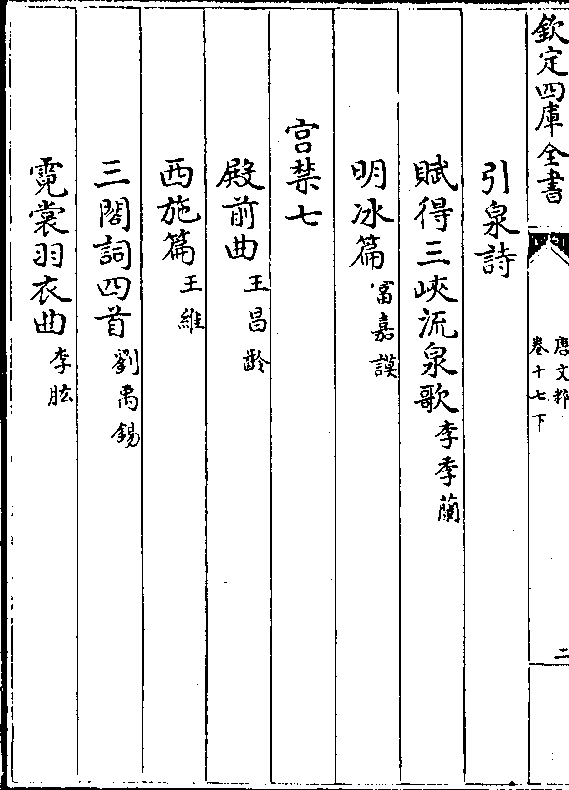 欽定四庫全書
唐文粹
卷十七下
二
引泉詩
賦得三峽流泉歌李季蘭
明冰篇富嘉謨
宫禁七
殿前曲王昌齡
西施篇王維
三閣詞四首劉禹錫
霓裳羽衣曲李肱